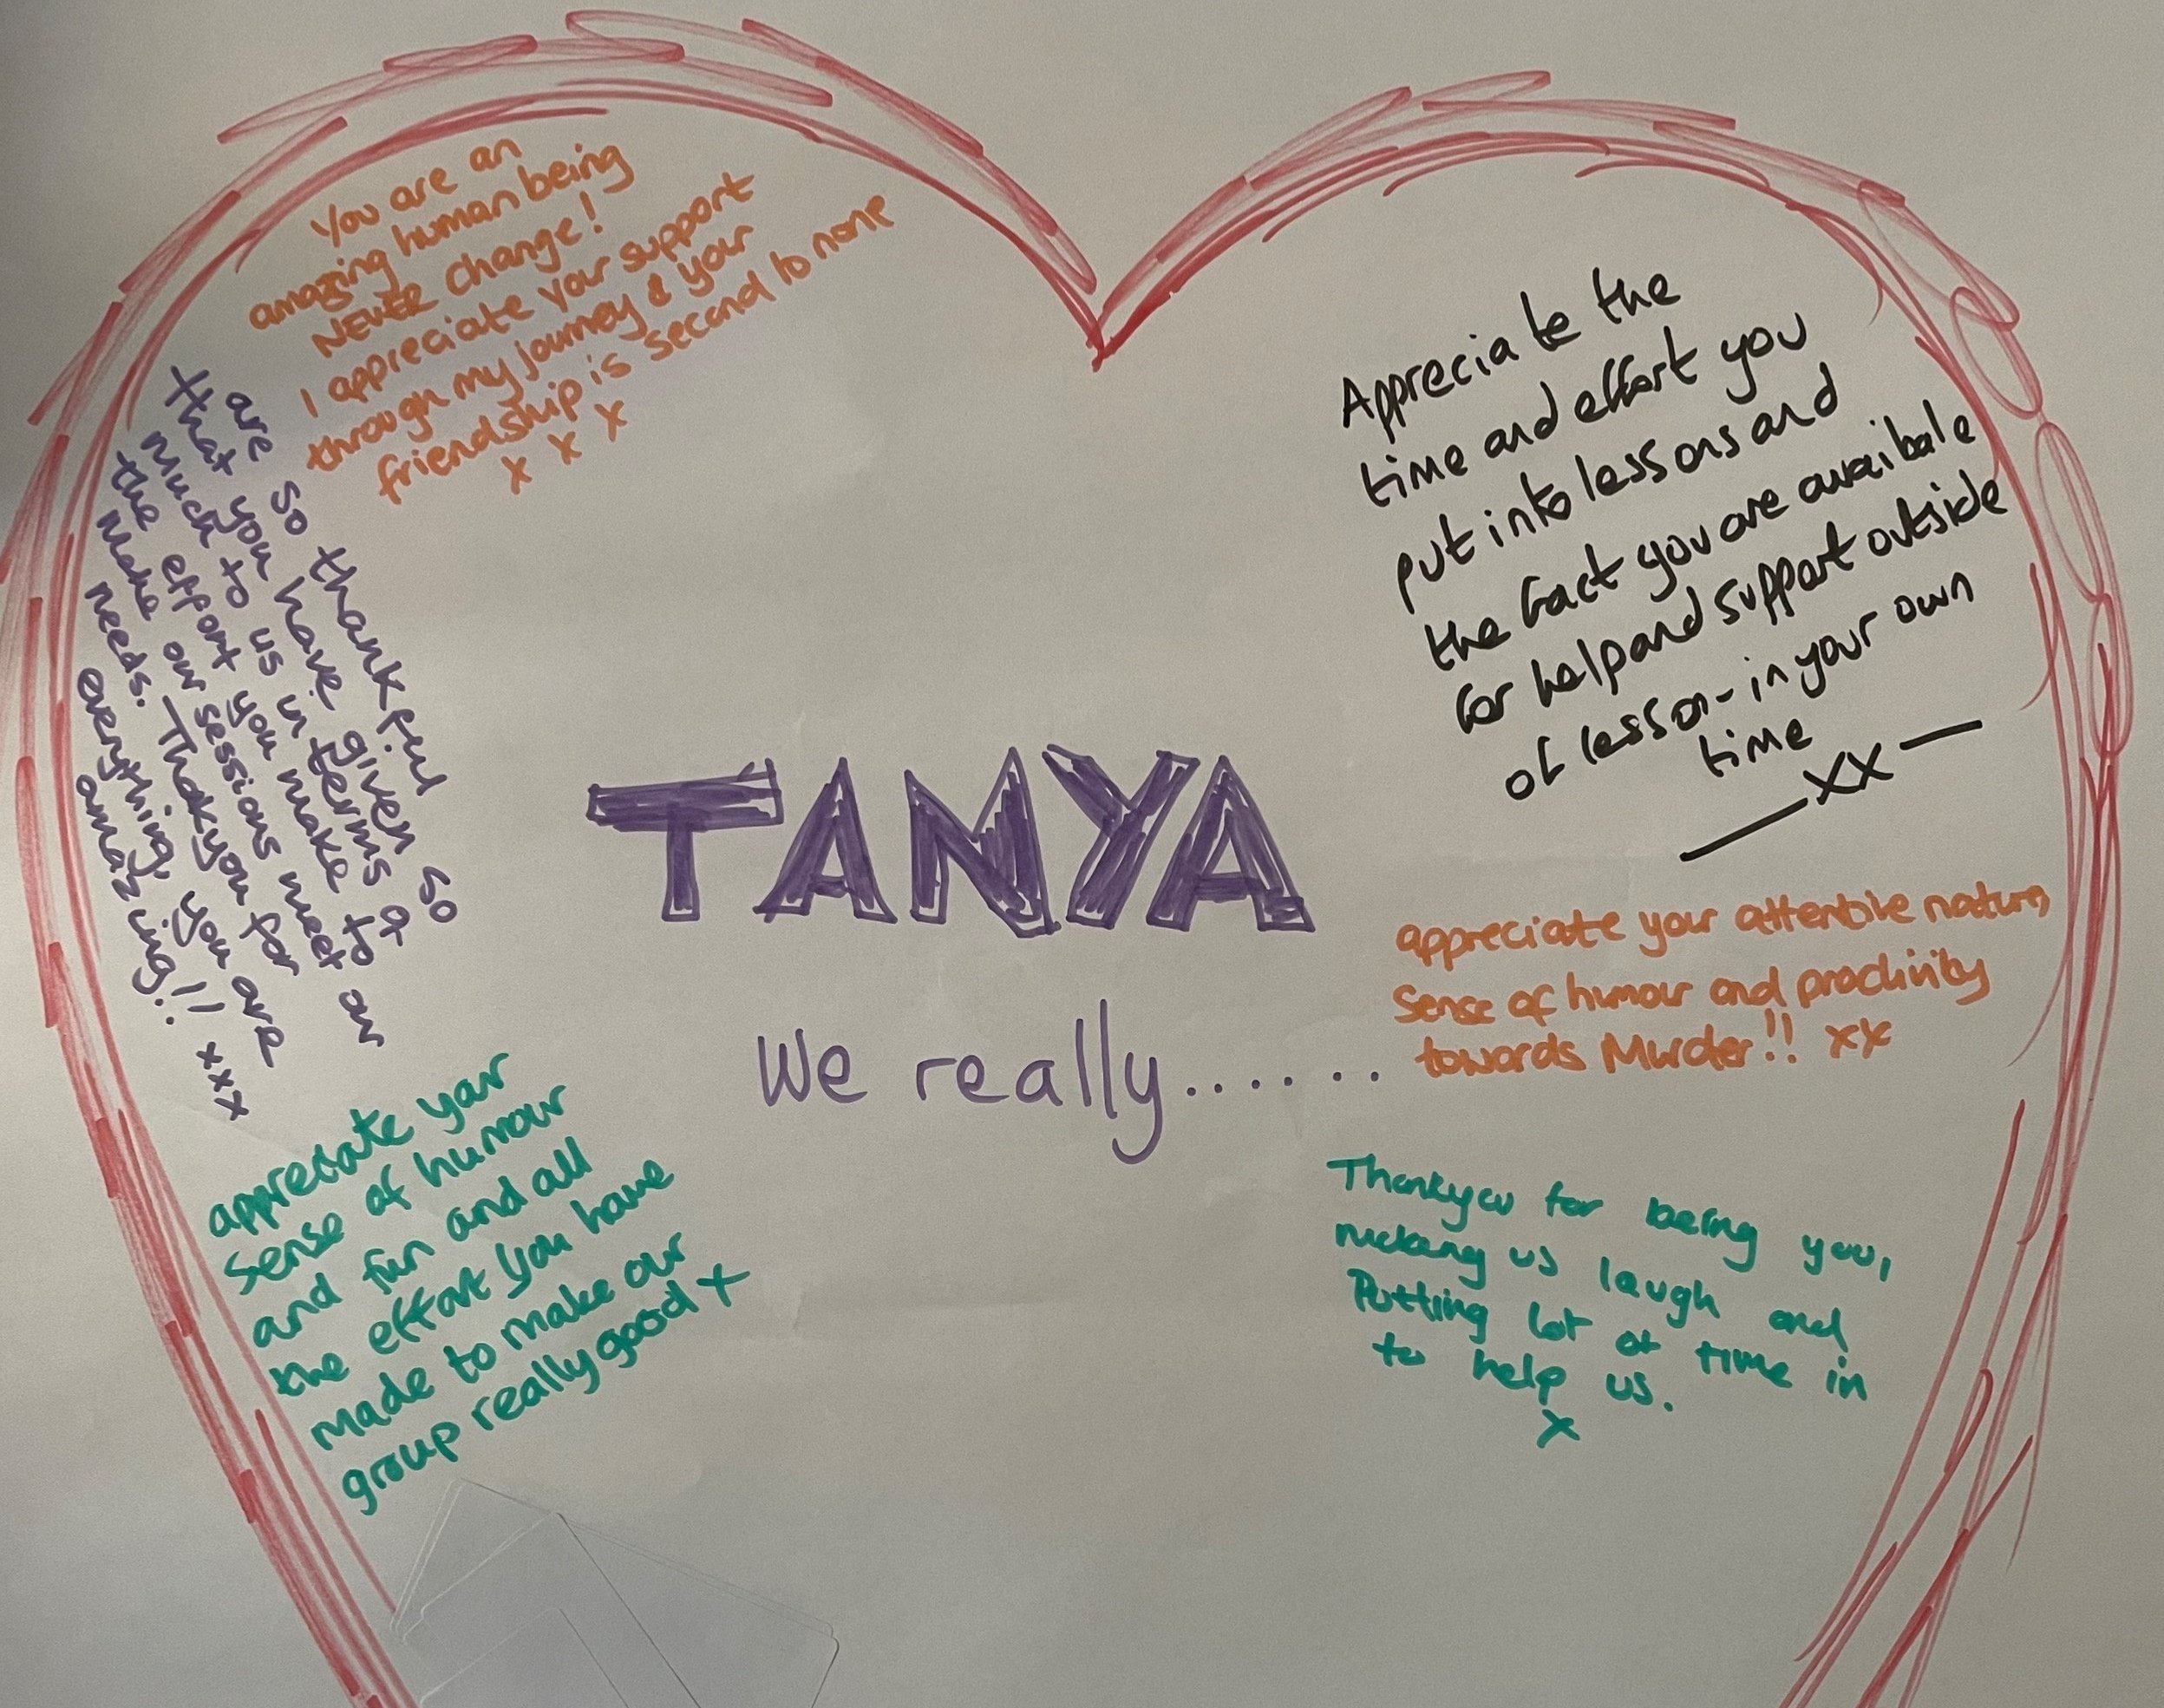 You are an
amazing human being
NEVER change!
I appreciate your support
through my journey & your
friendship is second to none
x x x
are so thankful
that you have given so
much to us in terms of
the effort you make to
make our sessions meet our
needs. Thankyou for
everything, you are
amazing!! xxx
TANYA
We really.......
appreciate your
sense of humour
and fun and all
the effort you have
made to make our
group really good x
Appreciate the
time and effort you
put into lessons and
the fact you are avaibale
for help and support outside
of lesson - in your own
time
— xx —
appreciate your attentive nature,
sense of humour and proclivity
towards Murder!! xx
Thankyou for being you,
making us laugh and
Putting lot of time in
to help us.
x